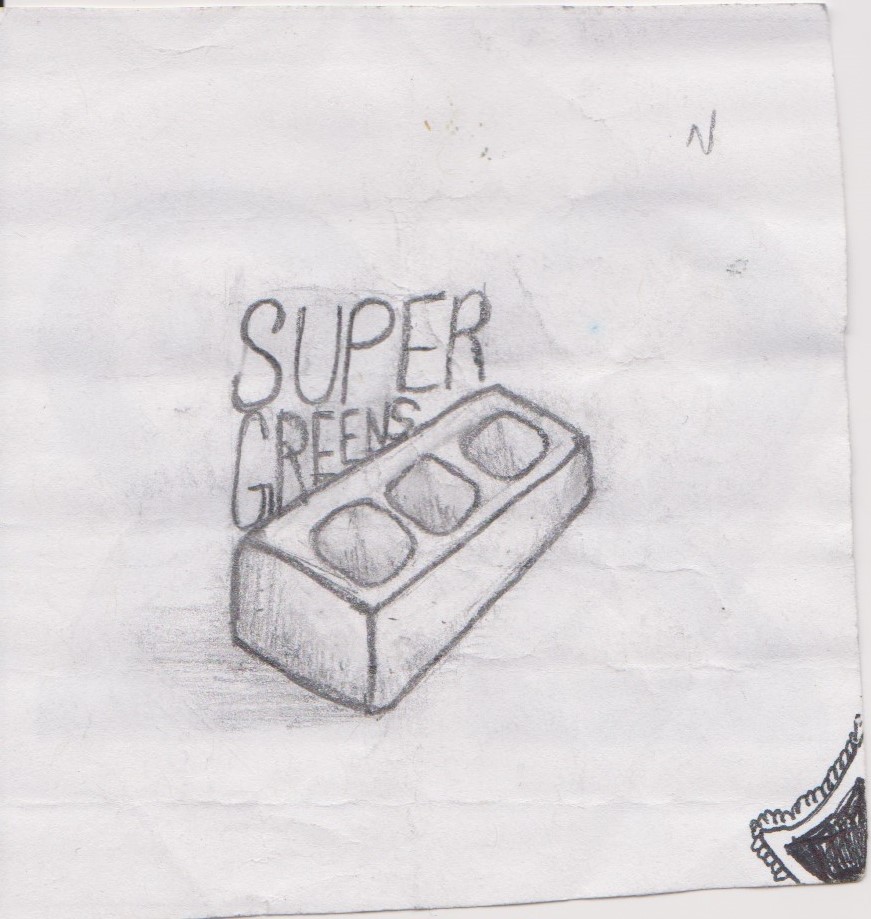 N
SUPER
GREENS